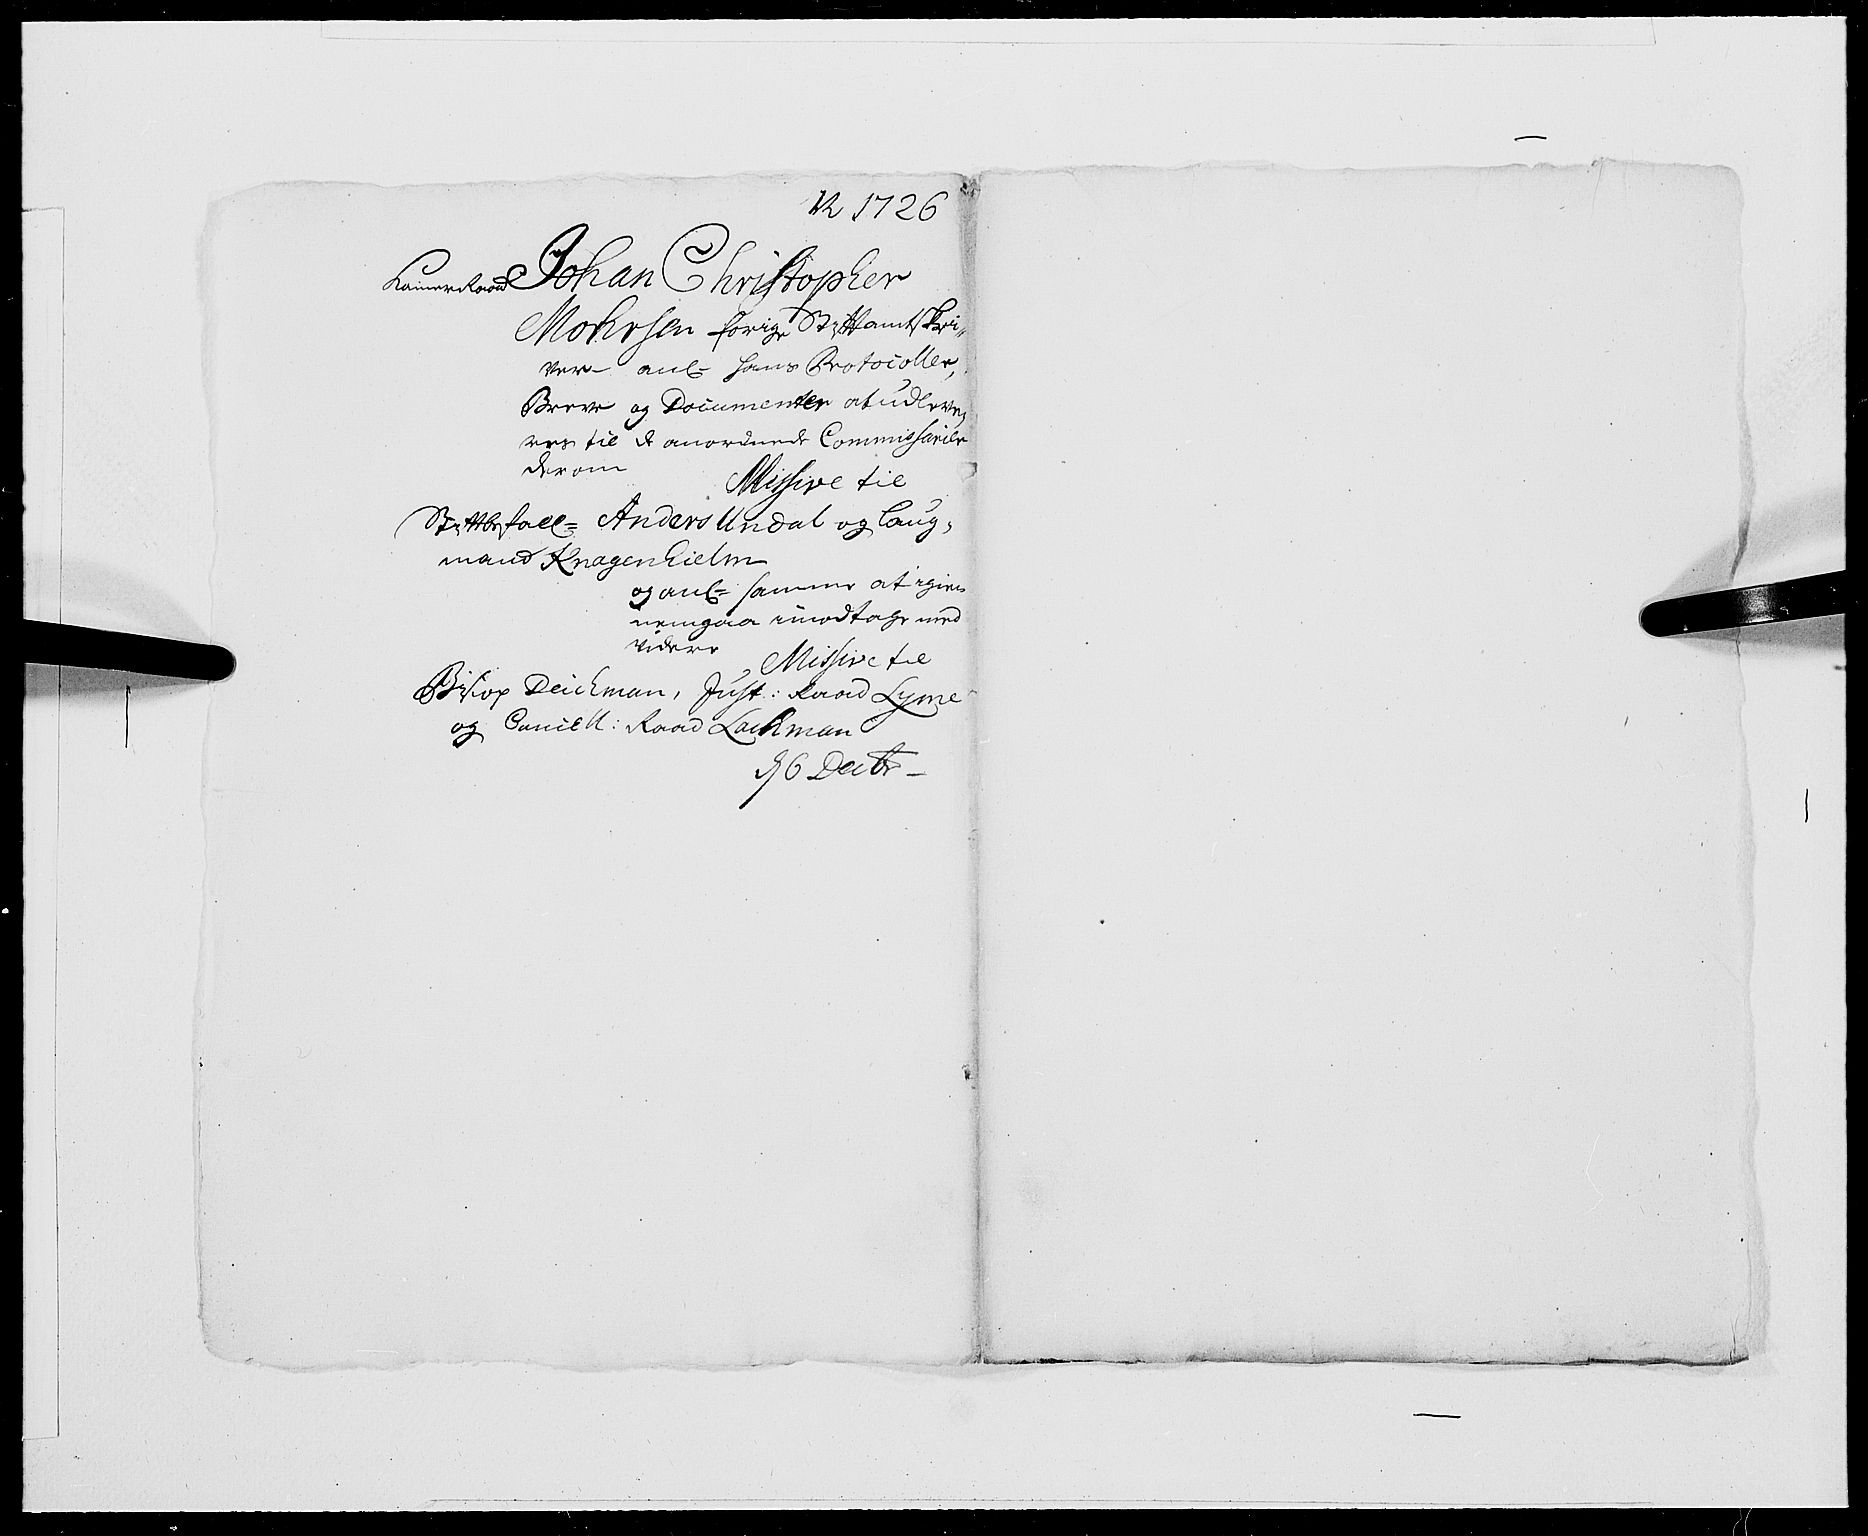 1726
Kamer Raad Johan Christopher
Mohrsen forige Stiftamtskri„
ver anl= hans Protocoller,
Breve og Documenter at udleve„
res til de anordnede Commissarier
derom
Missive til
Stiftbefal= Anders Undal og Laug„
mand Knagenhielm
og anl= samme at igien
nemgaa imodtage med
videre
Missive til
Biskop Deichman, Just: Raad Lyme
og Cancell: Raad Lachman
6 Decbr